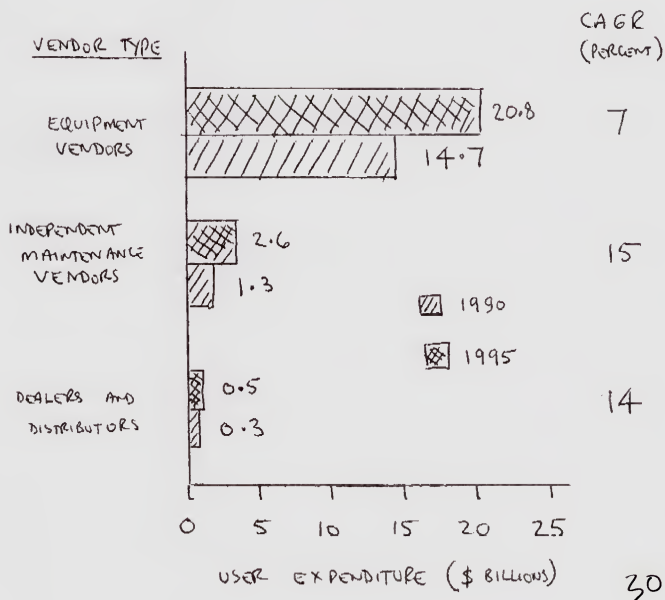 VENDOR TYPE
CAGR
(PERCENT)
EQUIPMENT
VENDORS
20.8
14.7
7
INDEPENDENT
MAINTENANCE
VENDORS
2.6
1.3
15
1990
1995
DEALERS AND
DISTRIBUTORS
0.5
0.3
14
0 5 10 15 20 25
USER EXPENDITURE ($ BILLIONS)
30